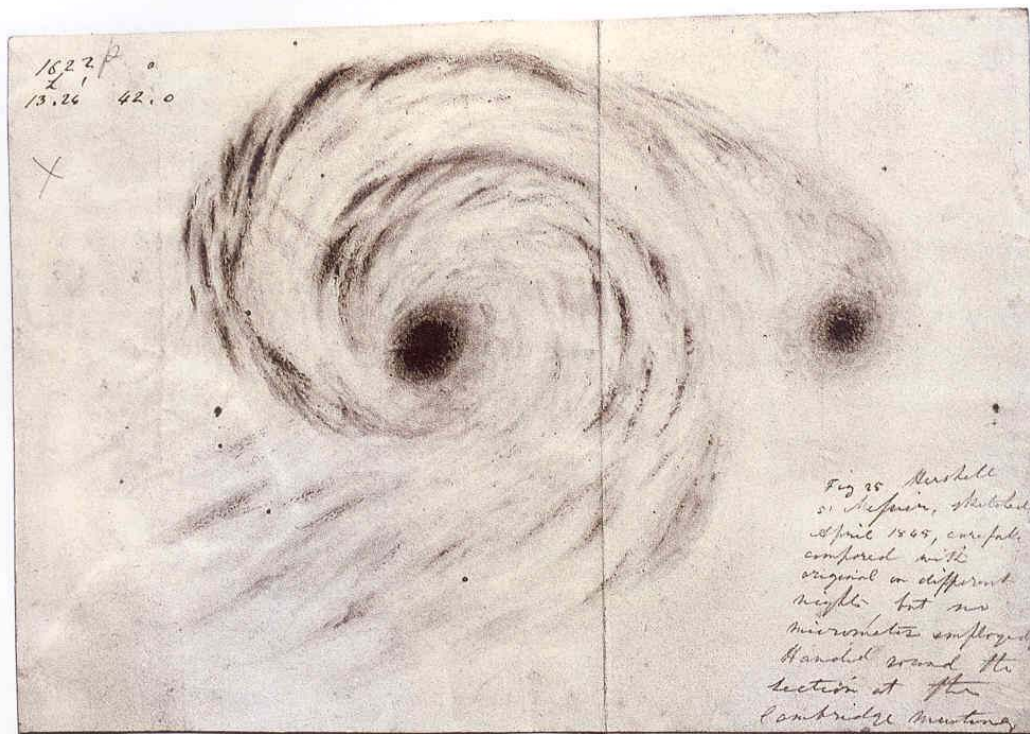 1622
13.26 42.0
Fig 25 Herschell
51 Messier, sketched
April 1845, careful
compared with
original on different
nights, but no
micrometer employed
Handed round the
section at the
Cambridge meeting